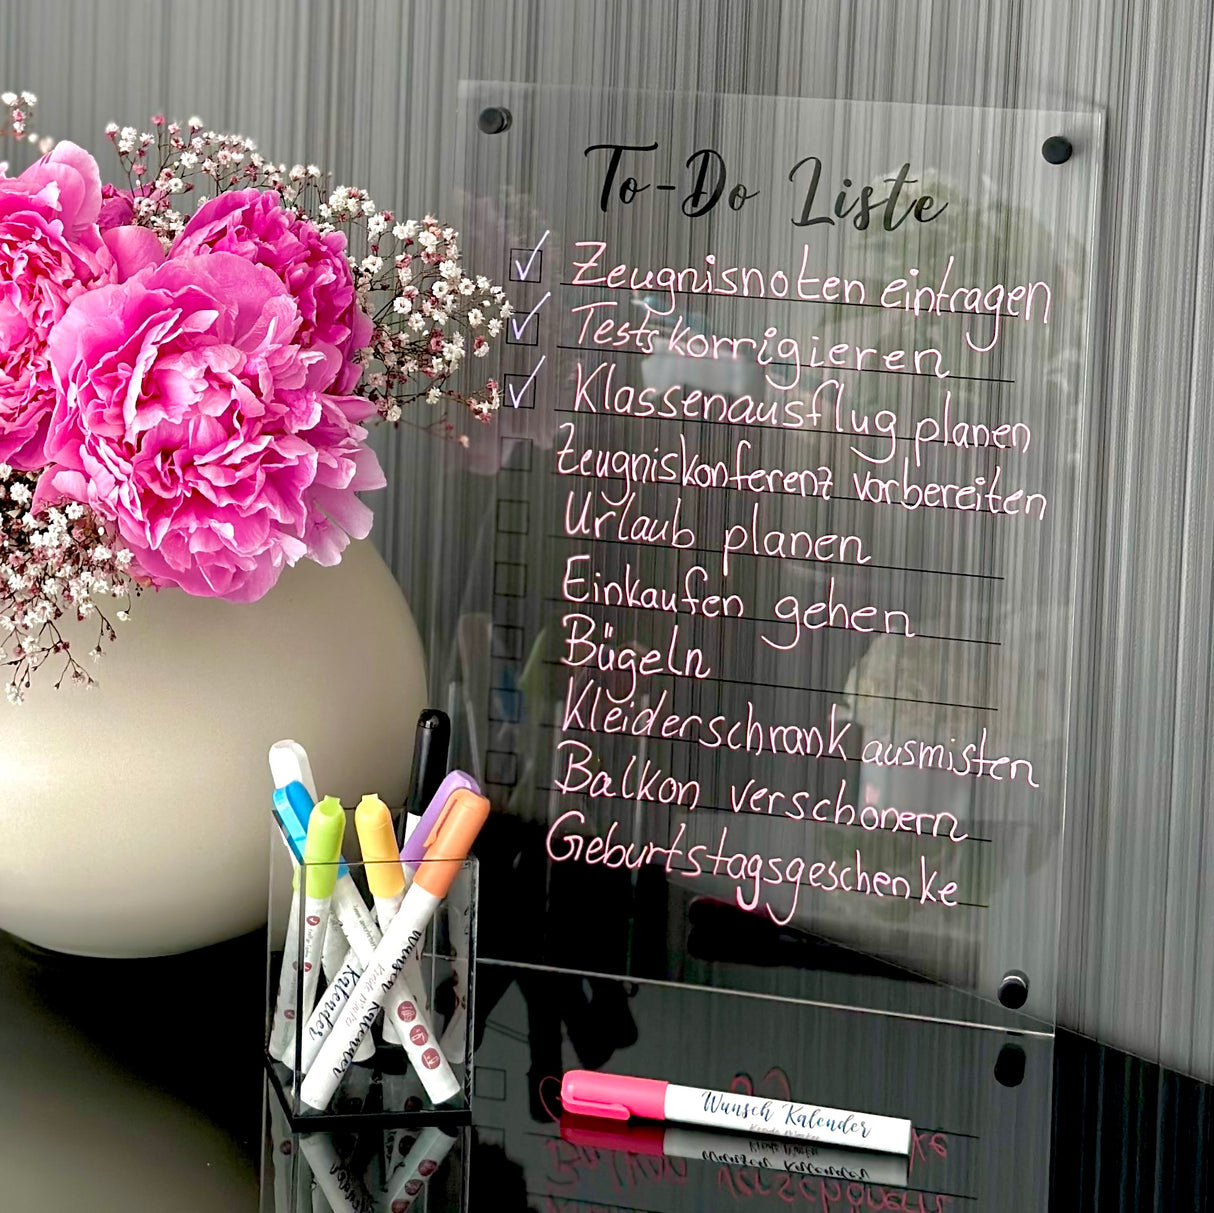 To-Do Liste
Zeugnisnoten eintragen
Tests korrigieren
Klassenausflug planen
Zeugniskonferenz vorbereiten
Urlaub planen
Einkaufen gehen
Bügeln
Kleiderschrank ausmisten
Balkon verschönern
Geburtstagsgeschenke
Wunsch Kalender
Kalender
Wunsch Kalender
Kreide Marker